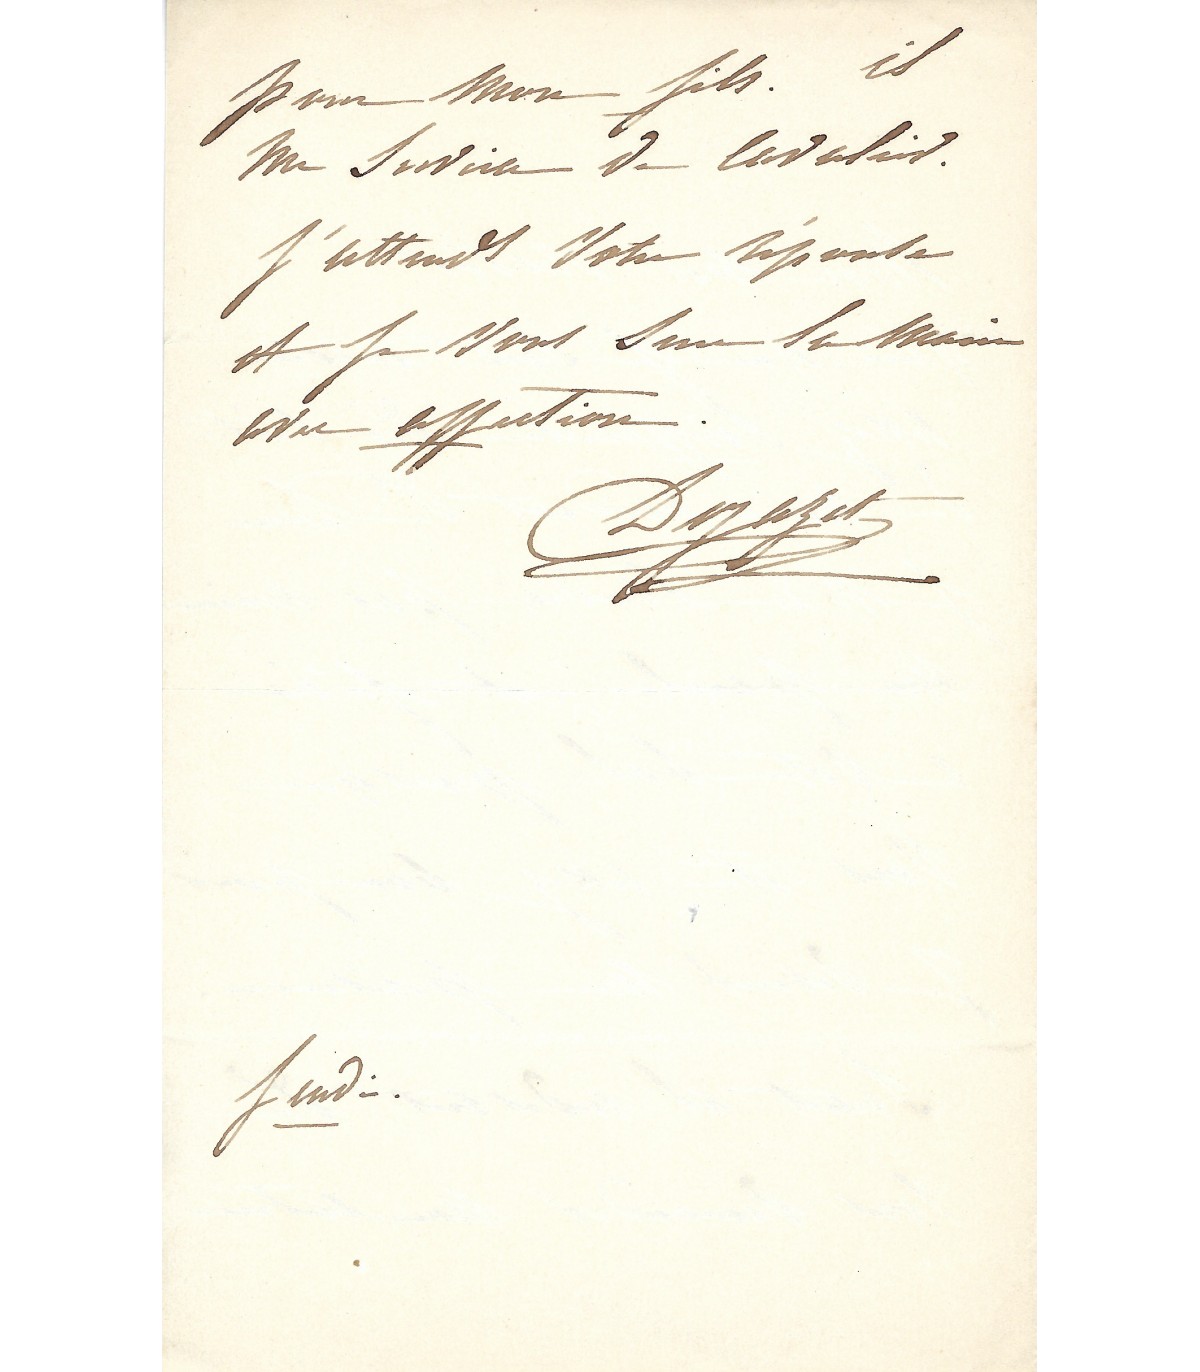 pour mon fils. il
me servira de cavalier.
j'attends votre réponse
et je vous serre la main
avec affection.
Dejazet
Jeudi.